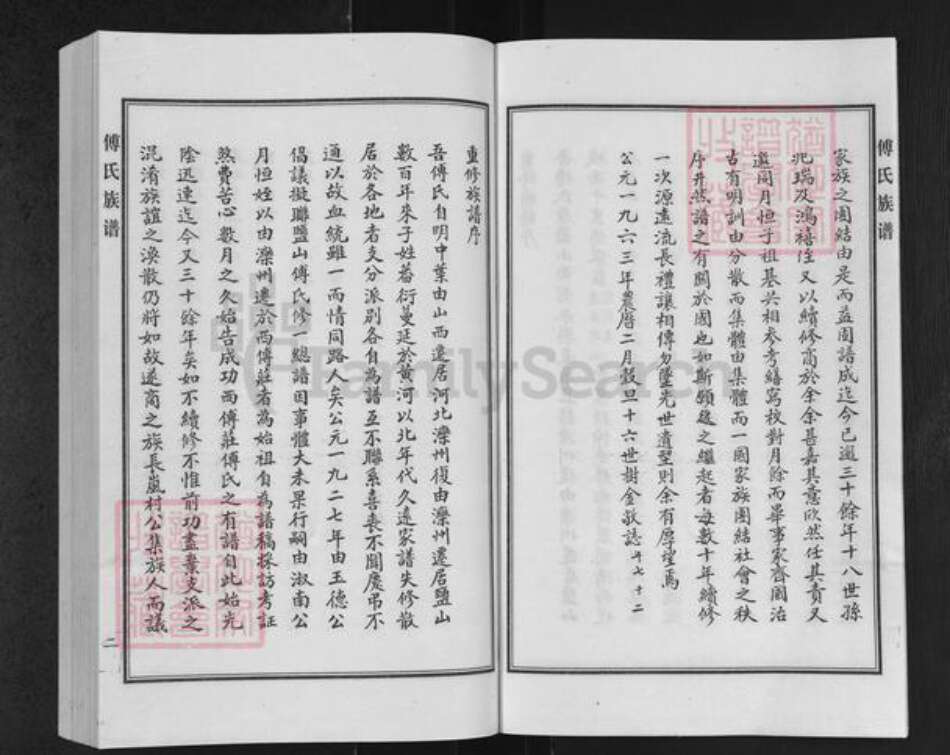 傅氏族谱
家族之團結由是而益固譜成迄今已逾三十餘年十八世孫
兆瑞及鴻禧侄又以續修商於余余甚嘉其意欣然任其責又
邀同月恒于祖基共相参考繕寫校對月餘而畢事家齊國治
古有明訓由分散而集體由集體而一國家族團結社會之秩
序井然譜之有關於國也如斯願後之繼起者每數十年續修
一次源遠流長禮讓相傳勿墜先世遺型則余有厚望焉
公元一九六三年農曆二月穀旦十六世樹金敬誌 年七十二
重修族譜序
吾傅氏自明中葉由山西遷居河北灤州復由灤州遷居鹽山
數百年來子姓蕃衍蔓延於黄河以北年代久遠家譜失修散
居於各地者支分派别各自為譜互不聯系喜喪不聞慶弔不
通以故血統雖一而情同路人矣公元一九二七年由玉德公
倡議擬聯鹽山傅氏修一總譜因事體大未果行嗣由淑南公
月恒姪以由灤州遷於西傅莊者為始祖自為譜稿採訪考証
煞費苦心數月之久始告成功西傅莊傅氏之有譜自此始光
陰迅速迄今又三十餘年矣如不續修不惟前功盡棄支派之
混淆族誼之渙散仍將如故遂商之族長嵐村公集族人而議
傅氏族谱
二
FamilySearch